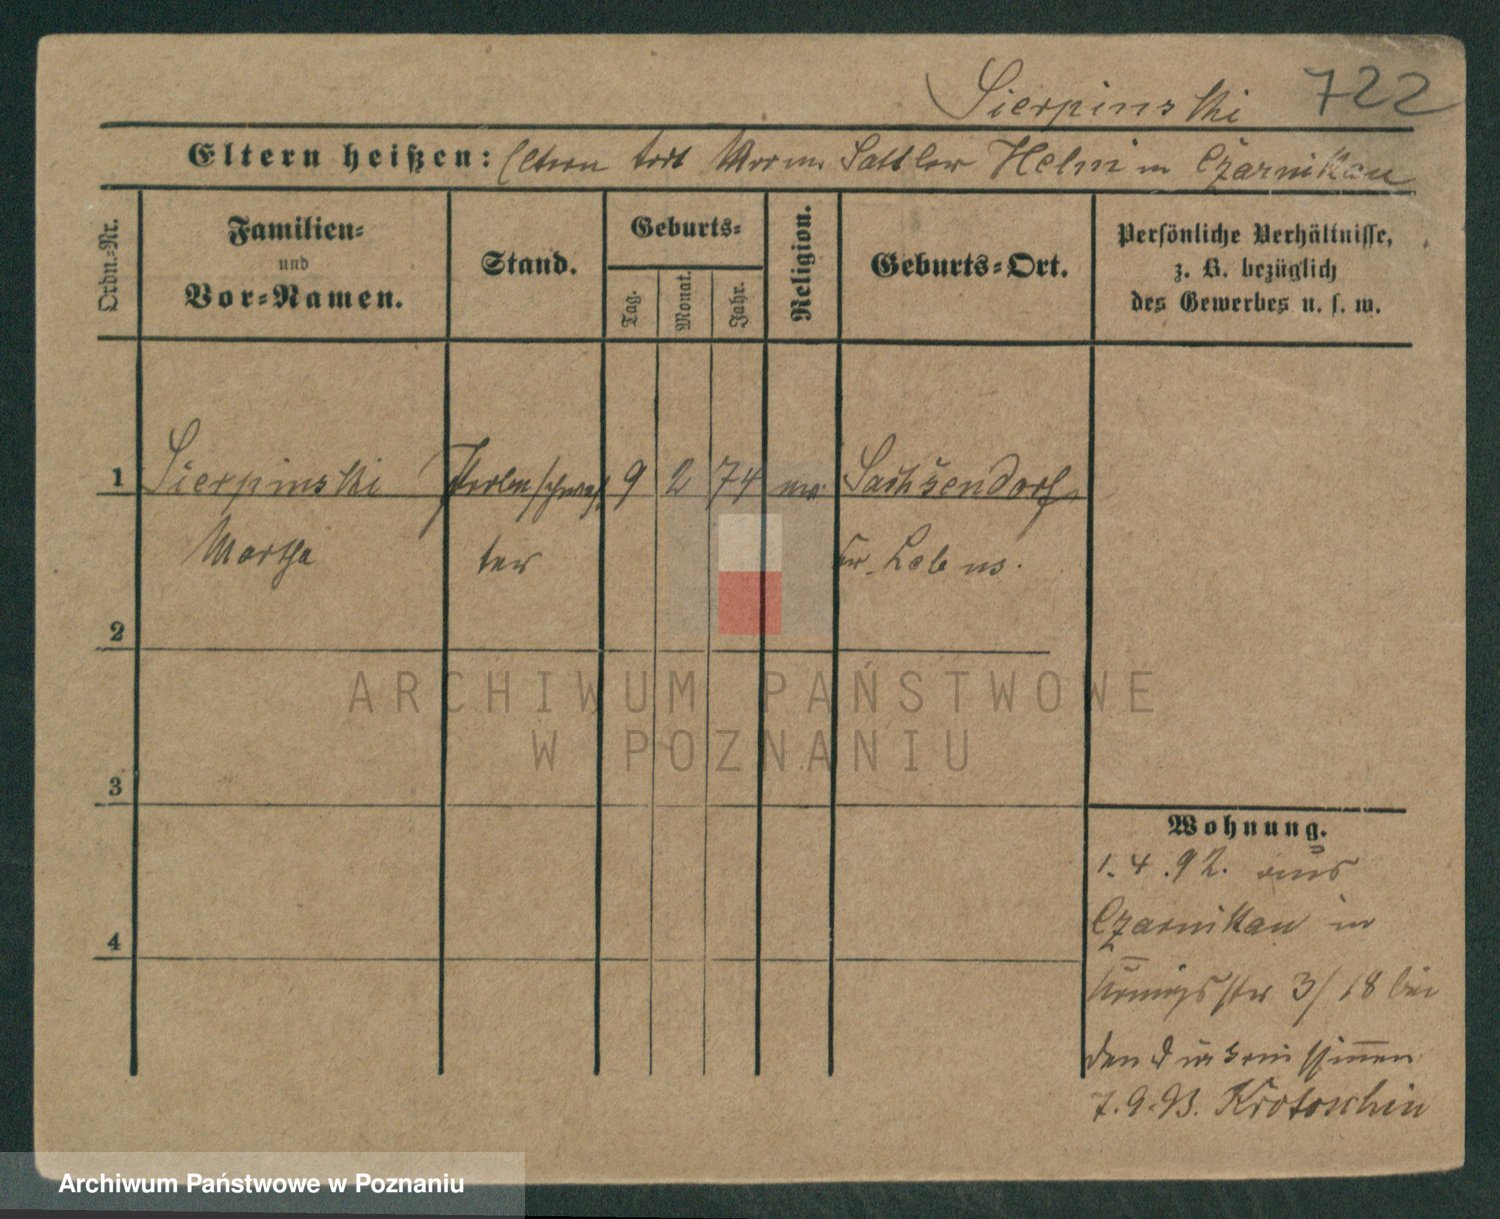 Sierpinski 722
Eltern heißen: Eltern todt Vorm. Sattler Helm in Czarnikau
Ordn.-Nr.
Familien-
und
Vor-Namen.
Stand.
Geburts-
Tag.
Monat.
Jahr.
Religion.
Geburts-Ort.
Persönliche Verhältnisse,
z. B. bezüglich
des Gewerbes u. s. w.
1 Sierpinski 9 2 74 ev. Sachsendorf
Martha ter Kr. Lebus.
2
3
4
Wohnung.
1.4.92. aus
Czarnikau in
Königsstr 3/18 bei
den Diakonissinnen
7.9.93. Krotoschin
ARCHIWUM PAŃSTWOWE
W POZNANIU
Archiwum Państwowe w Poznaniu